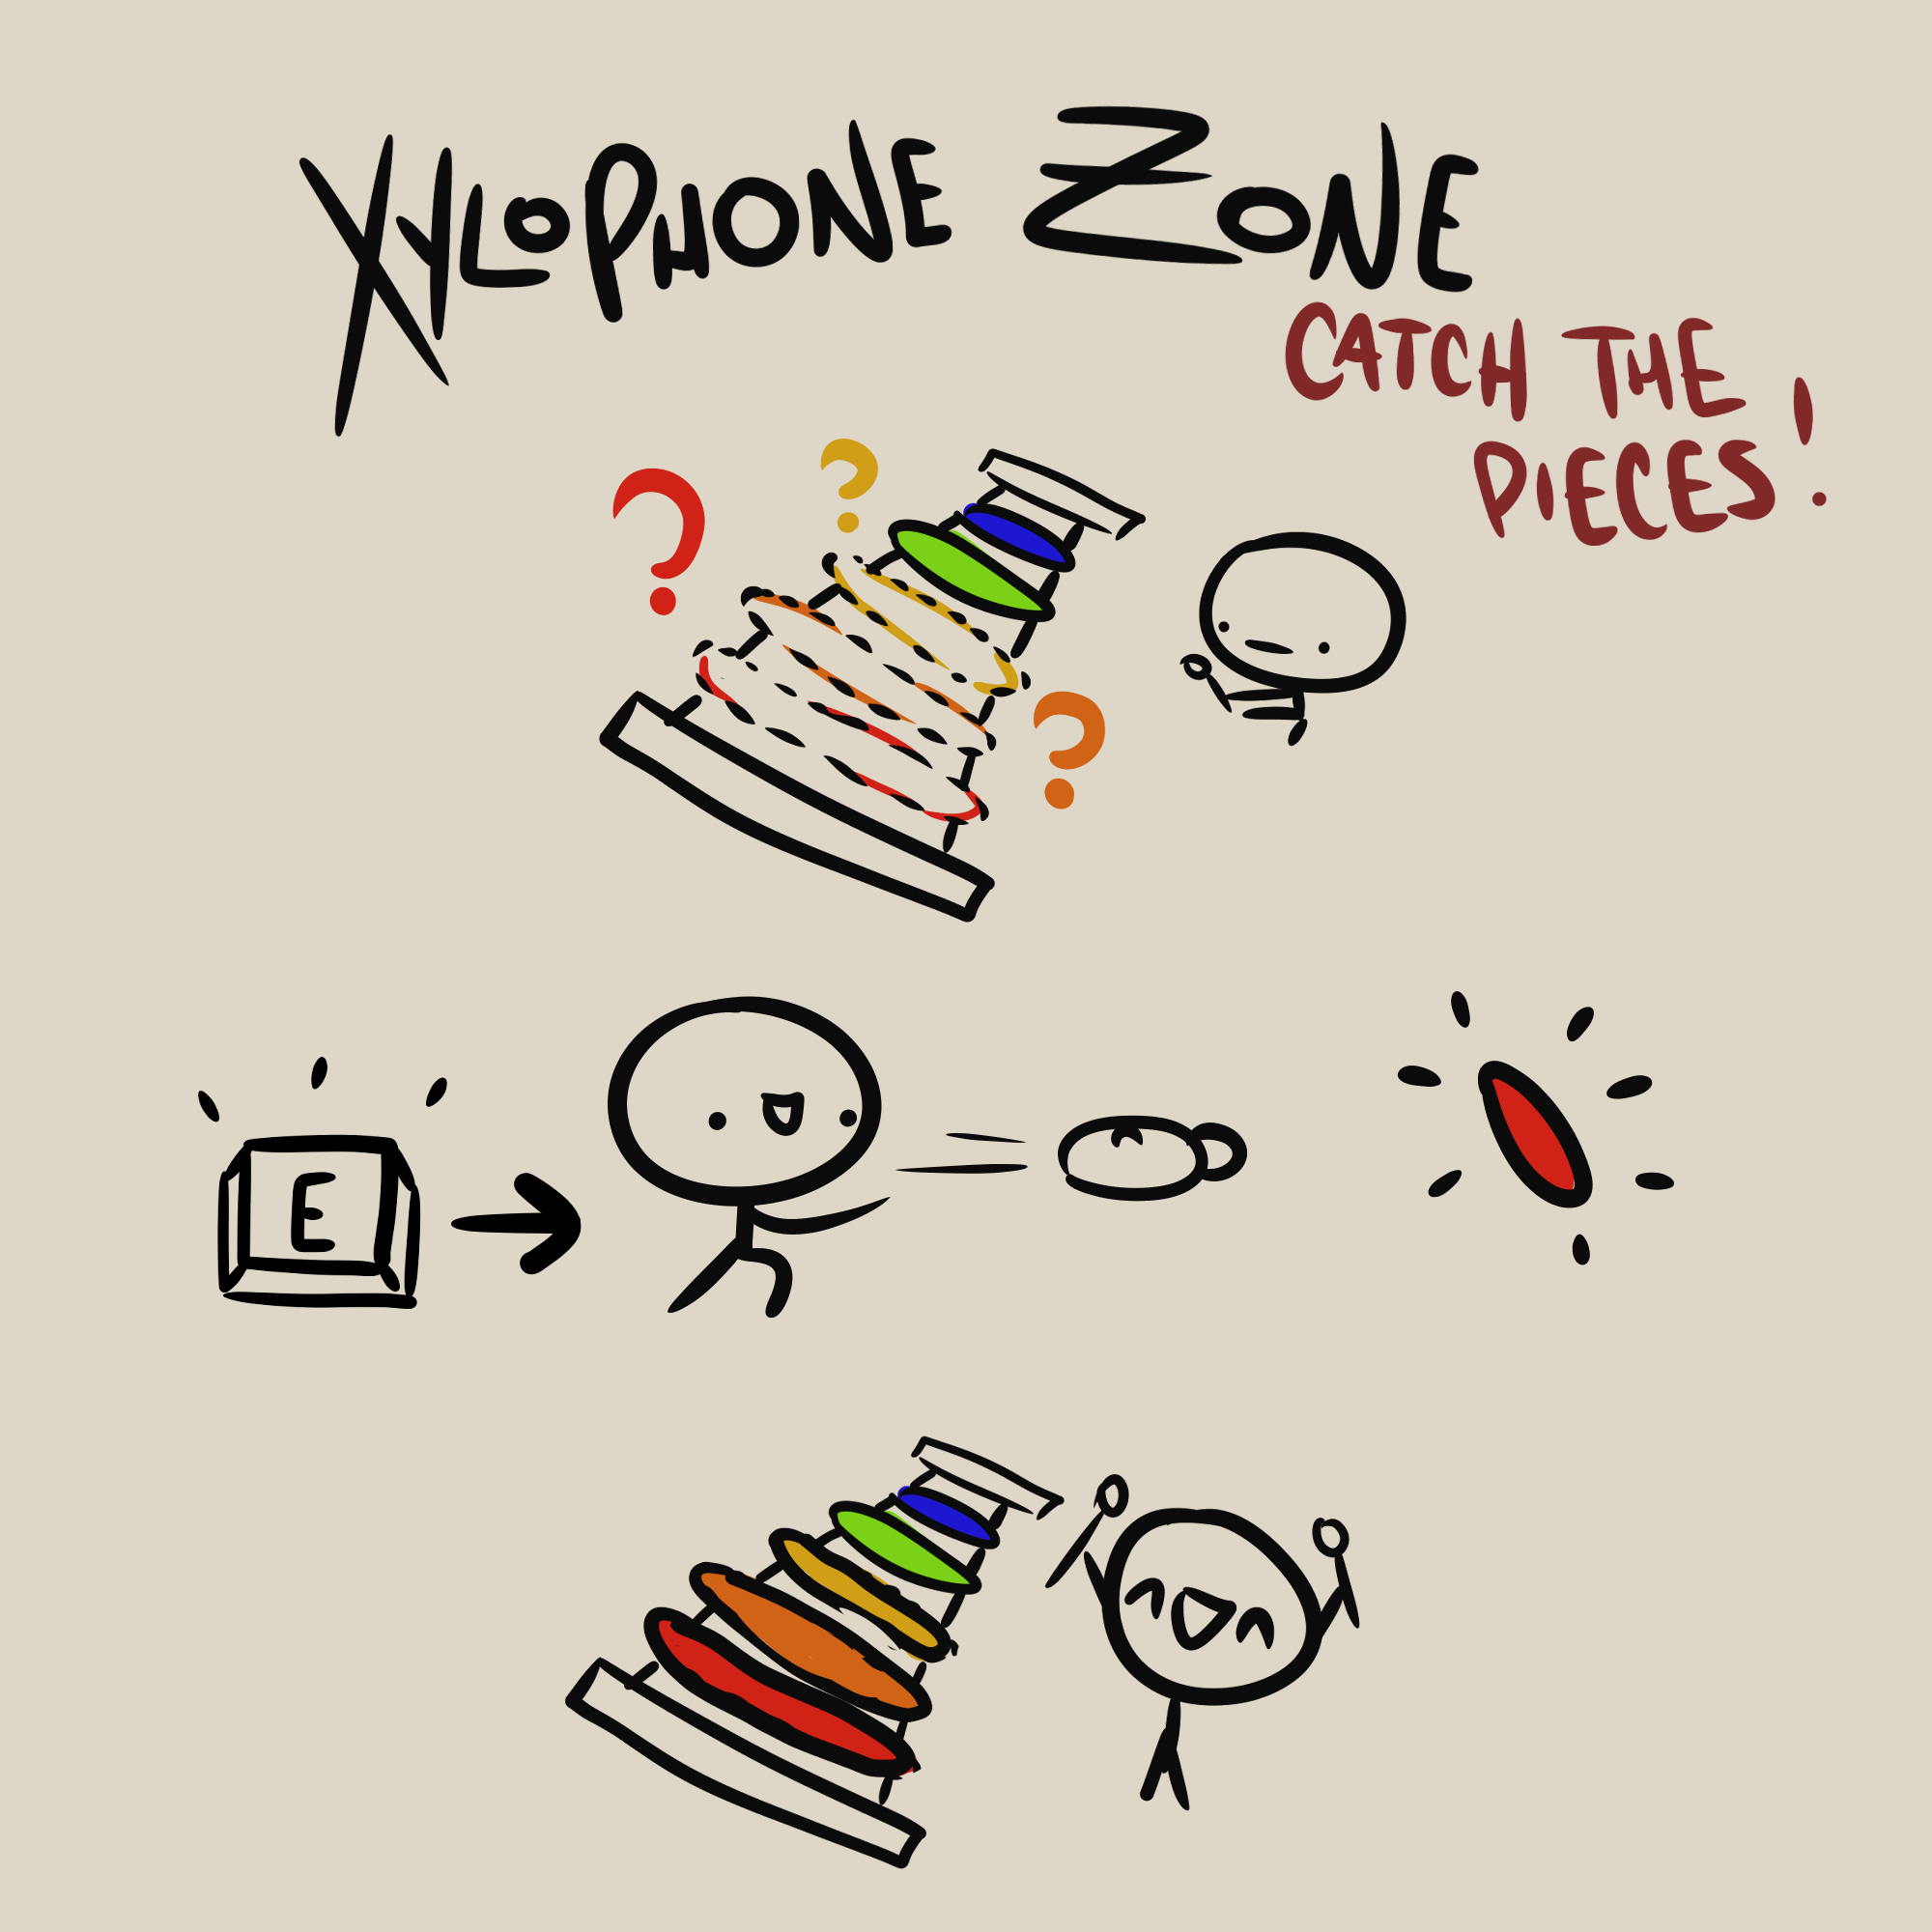 XYLOPHONE ZONE
CATCH THE
PIECES!
?
?
?
E